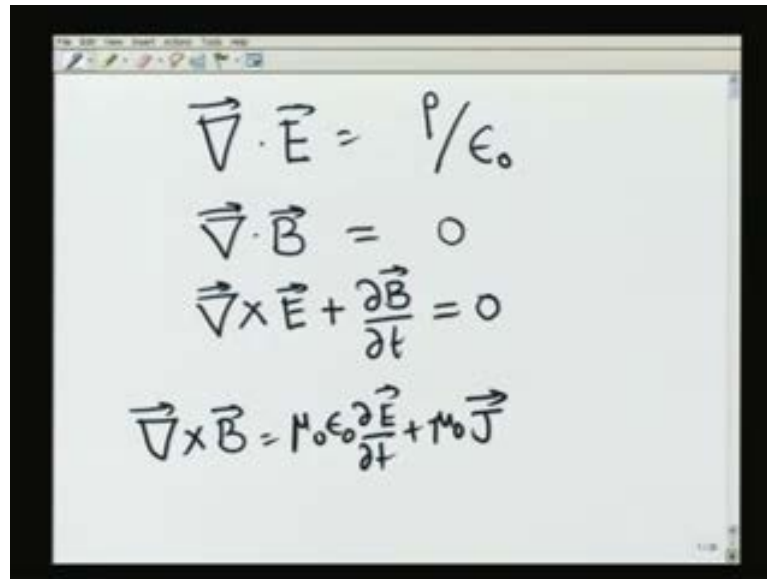 File Edit View Insert Actions Tools Help
∇⃗ · E⃗ = ρ/ϵ₀
∇⃗ · B⃗ = 0
∇⃗ × E⃗ + ∂B⃗/∂t = 0
∇⃗ × B⃗ = μ₀ϵ₀ ∂E⃗/∂t + μ₀ J⃗